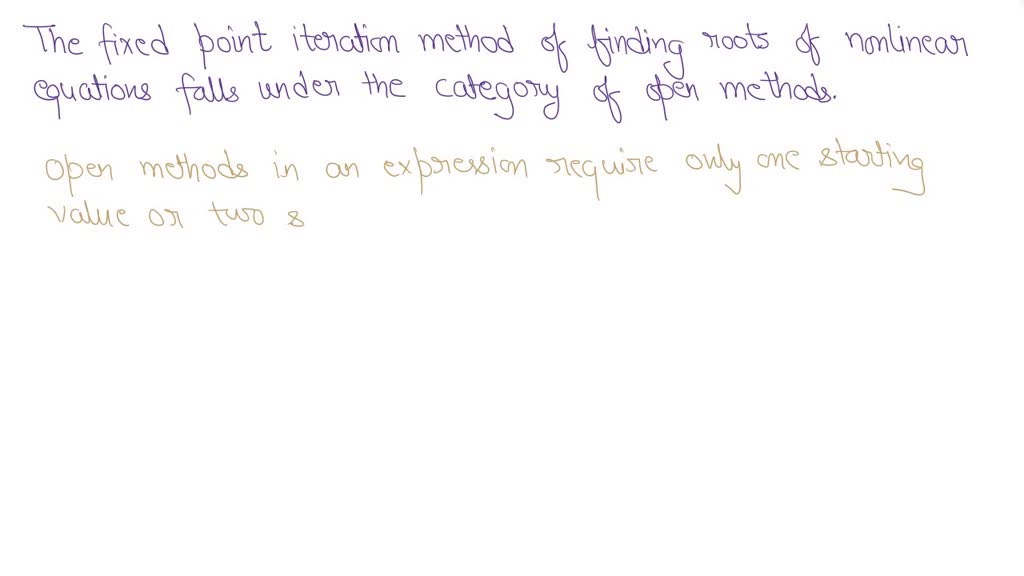 The fixed point iteration method of finding roots of nonlinear
equations falls under the category of open methods.
Open methods in an expression require only one starting
value or two s